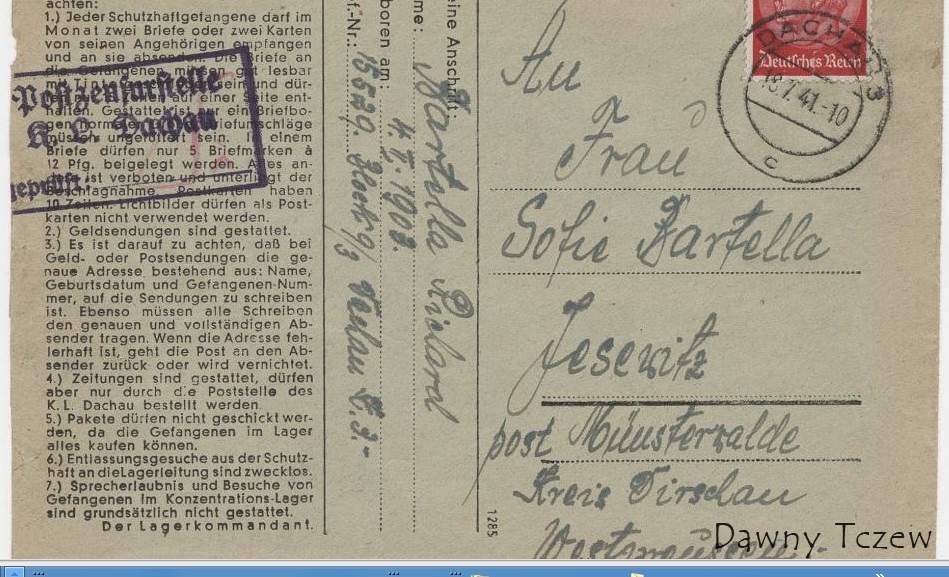 achten:
1.) Jeder Schutzhaftgefangene darf im
Monat zwei Briefe oder zwei Karten
von seinen Angehörigen empfangen
und an sie absenden. Die Briefe an
die Gefangenen müssen gut lesbar
mit Tinte sein und dür-
fen auf einer Seite ent-
halten. Gestattet nur ein Briefbo-
gen
müssen ungefüttert sein. In einem
Briefe dürfen nur 5 Briefmarken à
12 Pfg. beigelegt werden. Alles an-
ist verboten und unterliegt der
Beschlagnahme. Postkarten haben
10 Zeilen. Lichtbilder dürfen als Post-
karten nicht verwendet werden.
2.) Geldsendungen sind gestattet.
3.) Es ist darauf zu achten, daß bei
Geld- oder Postsendungen die ge-
naue Adresse, bestehend aus: Name,
Geburtsdatum und Gefangenen-Num-
mer, auf die Sendungen zu schreiben
ist. Ebenso müssen alle Schreiben
den genauen und vollständigen Ab-
sender tragen. Wenn die Adresse feh-
lerhaft ist, geht die Post an den Ab-
sender zurück oder wird vernichtet.
4.) Zeitungen sind gestattet, dürfen
aber nur durch die Poststelle des
K. L. Dachau bestellt werden.
5.) Pakete dürfen nicht geschickt wer-
den, da die Gefangenen im Lager
alles kaufen können.
6.) Entlassungsgesuche aus der Schutz-
haft an die Lagerleitung sind zwecklos.
7.) Sprecherlaubnis und Besuche von
Gefangenen im Konzentrations-Lager
sind grundsätzlich nicht gestattet.
Der Lagerkommandant.
Postzensurstelle
K. L. Dachau
geprüft:
eine Anschrift:
me: Bartella Richard
boren am: 1908.
f.-Nr.: Block 9/3 Dachau
1285
An
Frau
Sofie Bartella
Jesewitz
post Münsterwalde
Kreis Dirschau
Westpreussen
Deutsches Reich
DACHAU 3
18.7.41.-10
c
Dawny Tczew